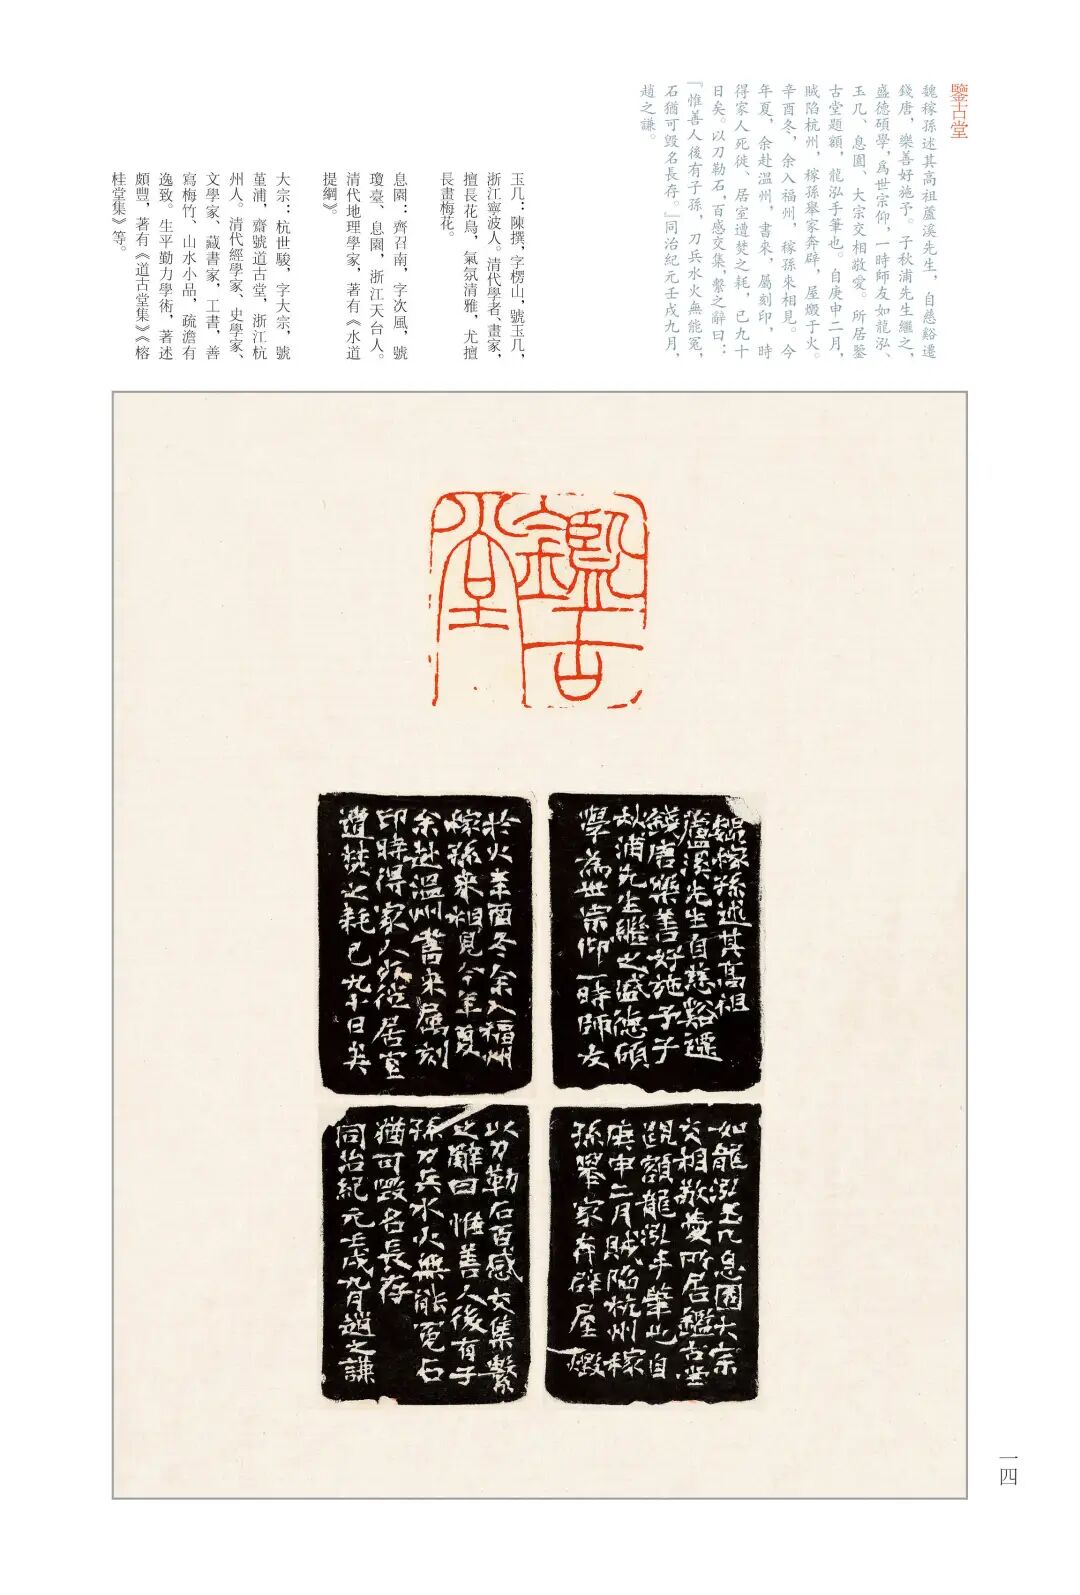 鑒古堂
魏稼孫述其高祖蘆溪先生，自慈谿遷
錢唐，樂善好施予。子秋浦先生繼之，
盛德碩學，爲世宗仰，一時師友如龍泓、
玉几、息園、大宗交相敬愛。所居鑒
古堂題額，龍泓手筆也。自庚申二月，
賊陷杭州，稼孫舉家奔辟，屋燬于火。
辛酉冬，余入福州，稼孫來相見。今
年夏，余赴溫州，書來，屬刻印，時
得家人死徙、居室遭焚之耗，已九十
日矣。以刀勒石，百感交集，繫之辭曰：
『惟善人後有子孫，刀兵水火無能冤，
石猶可毀名長存。』同治紀元壬戌九月，
趙之謙。
玉几：陳撰，字楞山，號玉几，
浙江寧波人。清代學者、畫家，
擅長花鳥，氣氛清雅，尤擅
長畫梅花。
息園：齊召南，字次風，號
瓊臺、息園，浙江天台人。
清代地理學家，著有《水道
提綱》。
大宗：杭世駿，字大宗，號
堇浦，齋號道古堂，浙江杭
州人。清代經學家、史學家、
文學家、藏書家，工書，善
寫梅竹、山水小品，疏澹有
逸致。生平勤力學術，著述
頗豐，著有《道古堂集》《榕
桂堂集》等。
鑑古
堂
魏稼孫述其高祖
蘆溪先生自慈谿遷
錢唐樂善好施予子
秋浦先生繼之盛德碩
學為世宗仰一時師友
如龍泓玉几息園大宗
交相敬愛所居鑑古堂
題額龍泓手筆也自
庚申二月賊陷杭州稼
孫舉家奔辟屋燬
於火辛酉冬余入福州
稼孫來相見今年夏
余赴溫州書來屬刻
印時得家人死徙居室
遭焚之耗已九十日矣
以刀勒石百感交集繫
之辭曰惟善人後有子
孫刀兵水火無能冤石
猶可毀名長存
同治紀元壬戌九月趙之謙
一四